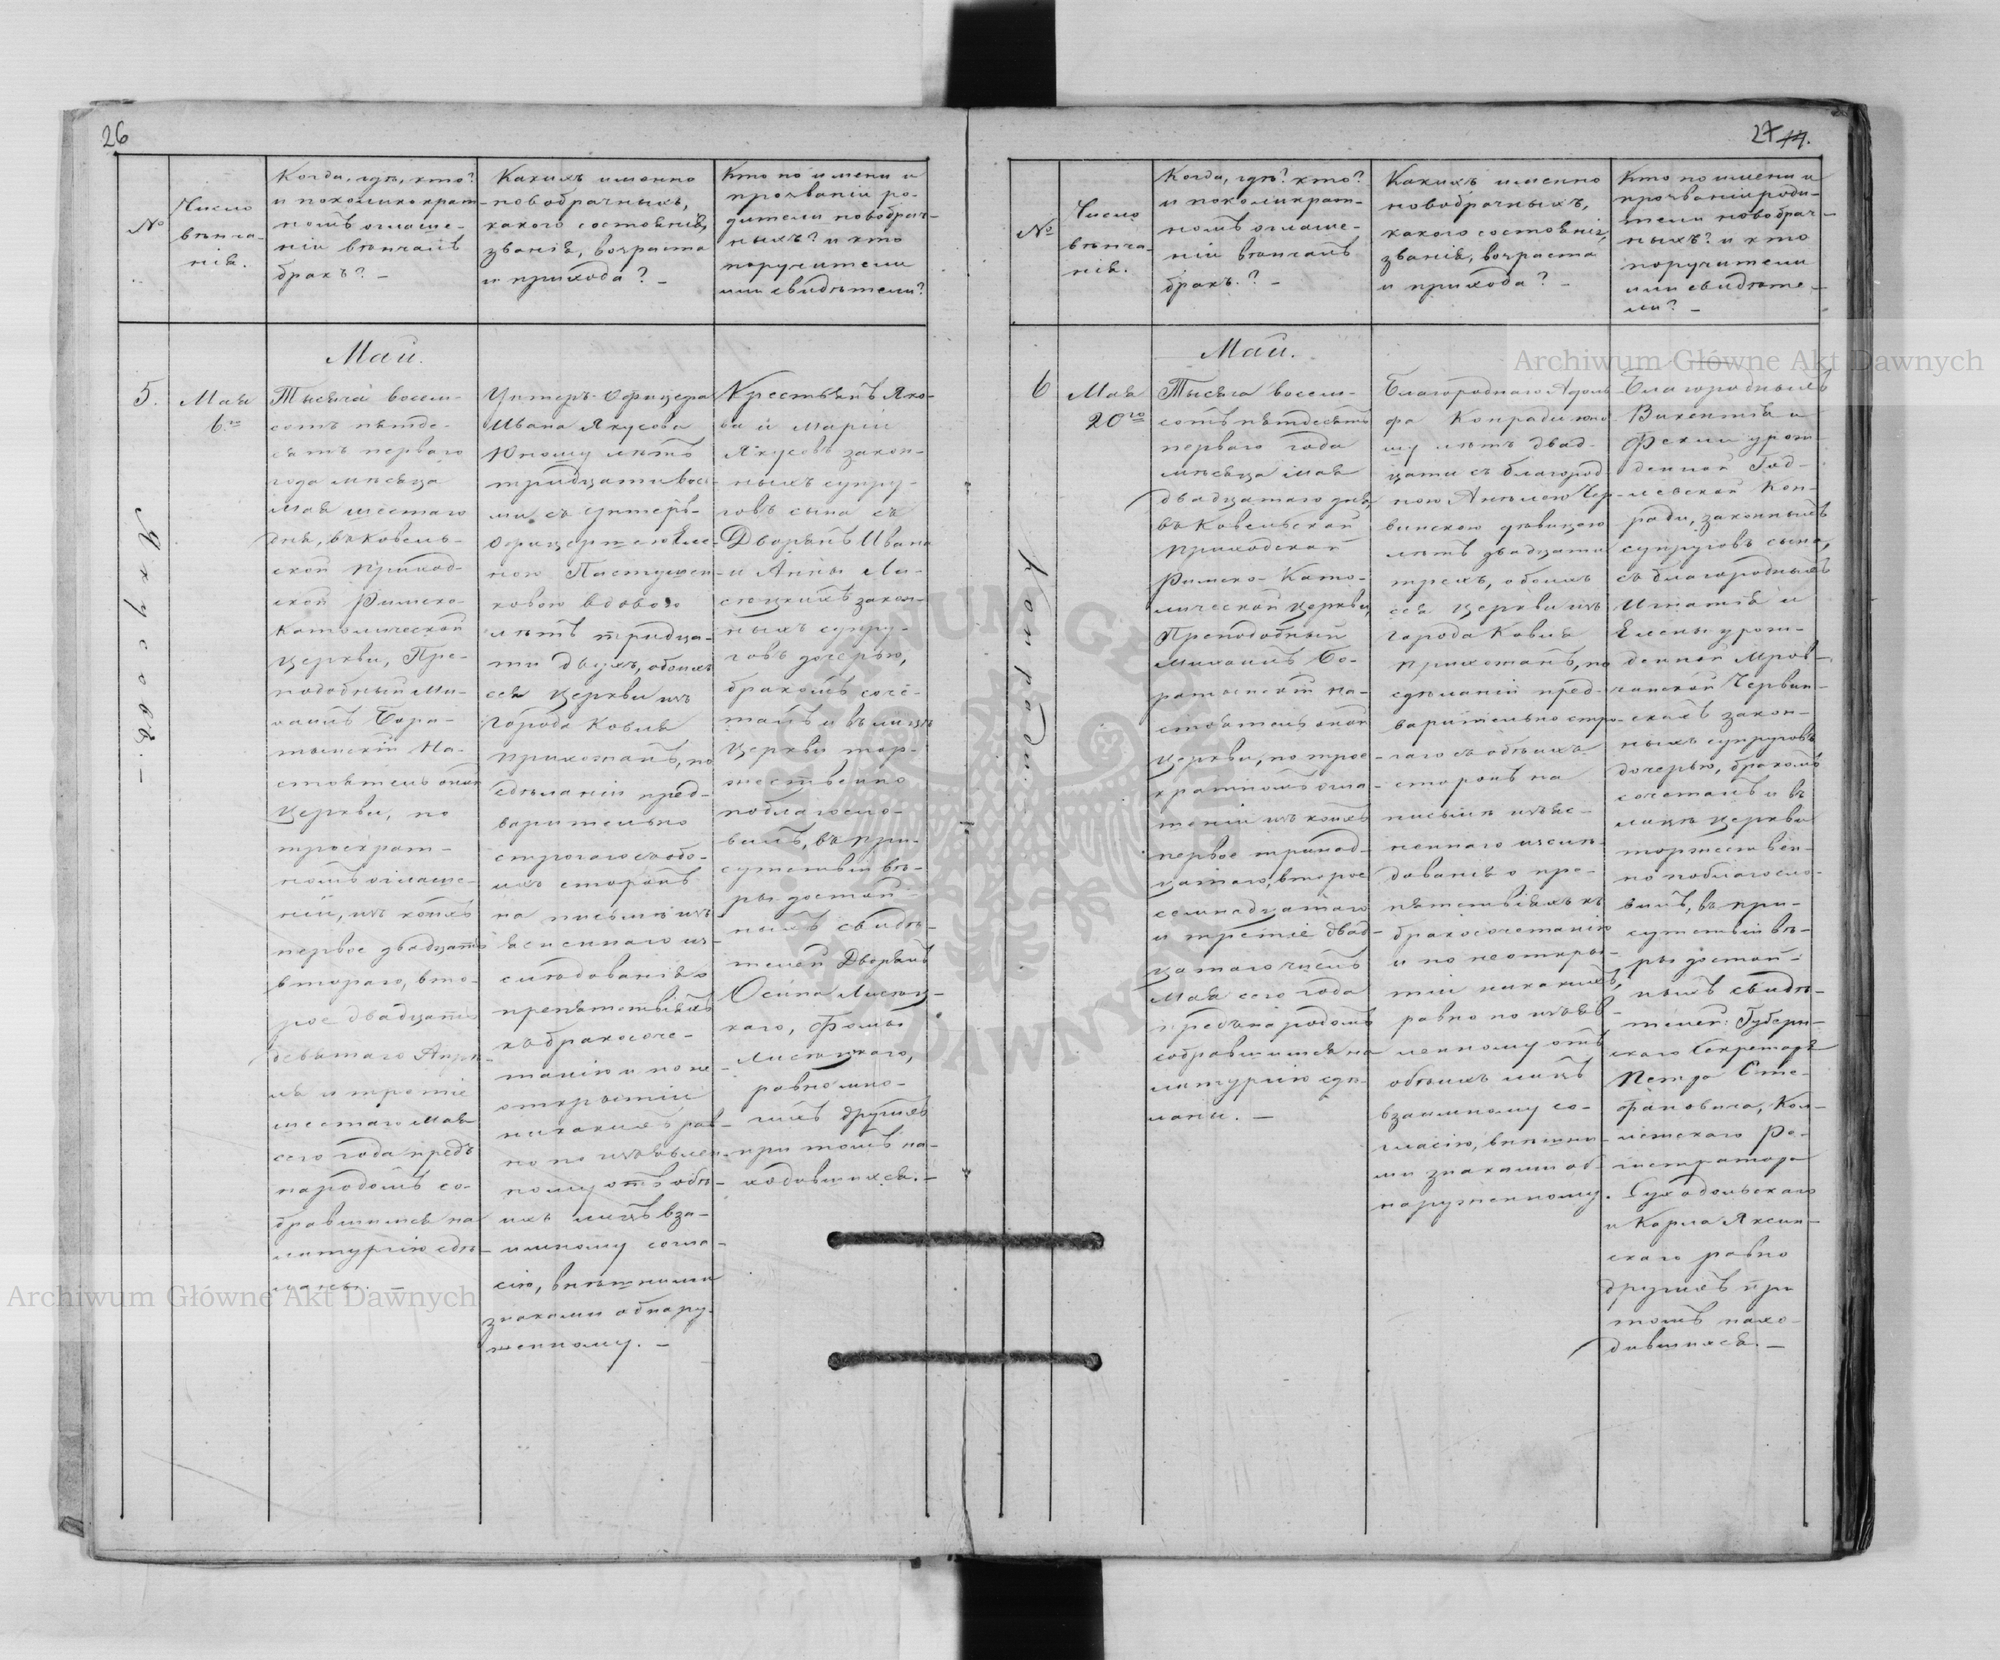 26
№
Число
венча-
нія.
Когда, где, кто?
и поколикократ
номъ оглаше-
ніи венчалъ
бракъ? -
Какихъ именно
-новобрачныхъ,
какого состоянія,
званія, возраста
и прихода? -
Кто по имени и
прозваніи ро-
дители новобрач-
ныхъ? и кто
поручители
или свидетели?
Май.
5.
Якусовъ. -
Мая
6го
Тысяча восем-
сотъ пятде-
сятъ перваго
года месяца
Мая шестаго
дня, въ Ковель-
ской приход-
ской Римско-
Католической
церкви, Пре-
подобный Ми-
хаилъ Бора-
тынскій На-
стоятель оной
церкви, по
троекрат-
номъ оглаше-
ніи, изъ коихъ
первое двадцать
втораго, вто-
рое двадцать
девятаго Апре-
ля и третіе
шестаго Мая
сего года предъ
народомъ со-
бравшимся на
литургію сде-
ланы. -
Унтеръ-Офицера
Ивана Якусова
Юношу летъ
тридцати вось
ми, съ Унтеръ-
Офицершею Еле-
ною Пастушен
ковою вдовою
летъ тридца-
ти двухъ, обоихъ
сея церкви изъ
города Ковля
прихожанъ, по
сделаніи пред-
варительно
строгаго съ обо-
ихъ сторонъ
на письме изъ
ясненнаго из-
следованія о
препятствіяхъ
къ бракосоче-
танію и по не
открытіи
никакихъ рав-
но по изъявлен
ному отъ обе-
ихъ лицъ вза-
имному согла-
сію, внешними
знаками обнару-
женному. -
Крестьянъ Яко-
ва и Маріи
Якусовъ закон-
ныхъ супру-
говъ сына съ
Дворянъ Ивана
и Анны Ли-
сецкихъ закон-
ныхъ супру-
говъ дочерью,
бракомъ соче-
талъ и въ лице
Церкви тор-
жественно
поблагосло-
вилъ, въ при-
сутствіи ве-
ры достой-
ныхъ свиде-
телей Дворянъ
Осипа Лисец-
каго, Фомы
Лисецкаго,
равно мно-
гихъ другихъ
при томъ на-
ходившихся. -
27
№
Число
венча-
нія.
Когда, где? кто?
и поколикрат-
номъ оглаше-
ніи венчалъ
бракъ? -
Какихъ именно
новобрачныхъ,
какого состоянія,
званія, возраста
и прихода? -
Кто по имени и
прозваніи роди-
тели новобрач-
ныхъ? и кто
поручители
или свидете-
ли? -
Май.
6
Конради.
Мая
20го
Тысяча восем-
сотъ пятдесятъ
перваго года
месяца мая
двадцатаго дня,
въ Ковельской
приходской
Римско-Като-
лической церкви,
Преподобный
Михаилъ Бо-
ратынскій На-
стоятель оной
церкви, по трое
кратномъ огла-
шеніи изъ коихъ
первое тринад-
цатаго, второе
семнадцатаго
и третіе двад-
цатаго числъ
Мая сего года
предъ народомъ
собравшимся на
литургію сде-
ланы. -
Благороднаго Адоль
фа Конради юно
шу летъ двад-
цати съ благород
ною Анелею Чер-
винскою девицею
летъ двадцати
трехъ, обоихъ
сея церкви изъ
города Ковля
прихожанъ, по
сделаніи пред-
варительно стро-
гаго съ обеихъ
сторонъ на
письме изъяс-
неннаго изсле-
дованія о пре-
пятствіяхъ къ
бракосочетанію
и по неоткры-
тіи никакихъ,
равно по изъяв-
ленному отъ
обеихъ лицъ
взаимному со-
гласію, внешни-
ми знаками об-
наруженному.
Благородныхъ
Викентія и
Феклы урож-
денной Год-
левской Кон-
ради, законныхъ
супруговъ сына,
съ благородныхъ
Игнатія и
Елены урож-
денной Мров-
чинской Червин-
скихъ закон-
ныхъ супруговъ
дочерью, бракомъ
сочеталъ и въ
лице церкви
торжествен-
но поблагосло-
вилъ, въ при-
сутствіи ве-
ры достой-
ныхъ свиде-
телей: Губерн-
скаго Секретаря
Петра Сте-
фановича, Кол-
лежскаго Ре-
гистратора
Суходольскаго
и Карла Яксин-
скаго равно
другихъ при
томъ нахо-
дившихся. -
Archiwum Główne Akt Dawnych
Archiwum Główne Akt Dawnych